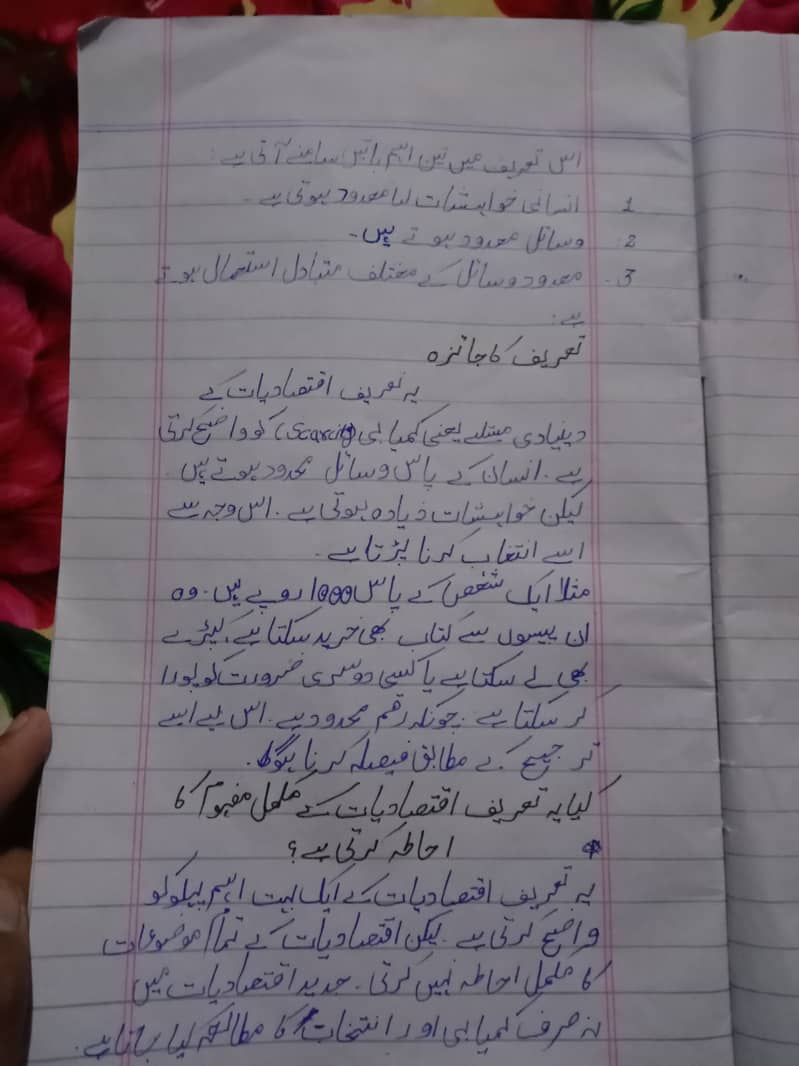 اس تعریف میں تین اہم باتیں سامنے آتی ہے:
1 انسانی خواہشات لامحدود ہوتی ہے۔
2: وسائل معدود ہوتے ہیں۔
3. معدود وسائل کے مختلف متبادل استعمال ہوتے
ہے:
تعریف کا جائزہ
یہ تعریف اقتصادیات کے
بنیادی مسئلے یعنی کمیابی (Scarcity) کو واضح کرتی
ہے. انسان کے پاس وسائل محدود ہوتے ہیں
لیکن خواہشات زیادہ ہوتی ہے. اس وجہ سے
اسے انتخاب کرنا پڑتا ہے.
مثلا ایک شخص کے پاس 1000 روپے ہیں. وہ
ان پیسوں سے کتاب بھی خرید سکتا ہے، کپڑے
بھی لے سکتا ہے یا کسی دوسری ضرورت کو پورا
کر سکتا ہے. چونکہ رقم محدود ہے. اس لیے اسے
ترجیح کے مطابق فیصلہ کرنا ہوگا.
کیا یہ تعریف اقتصادیات کے مکمل مفہوم کا
احاطہ کرتی ہے؟
یہ تعریف اقتصادیات کے ایک بہت اہم پہلو کو
واضح کرتی ہے. لیکن اقتصادیات کے تمام موضوعات
کا مکمل احاطہ نہیں کرتی. جدید اقتصادیات میں
نہ صرف کمیابی اور انتخاب کا مطالعہ کیا جاتا ہے.